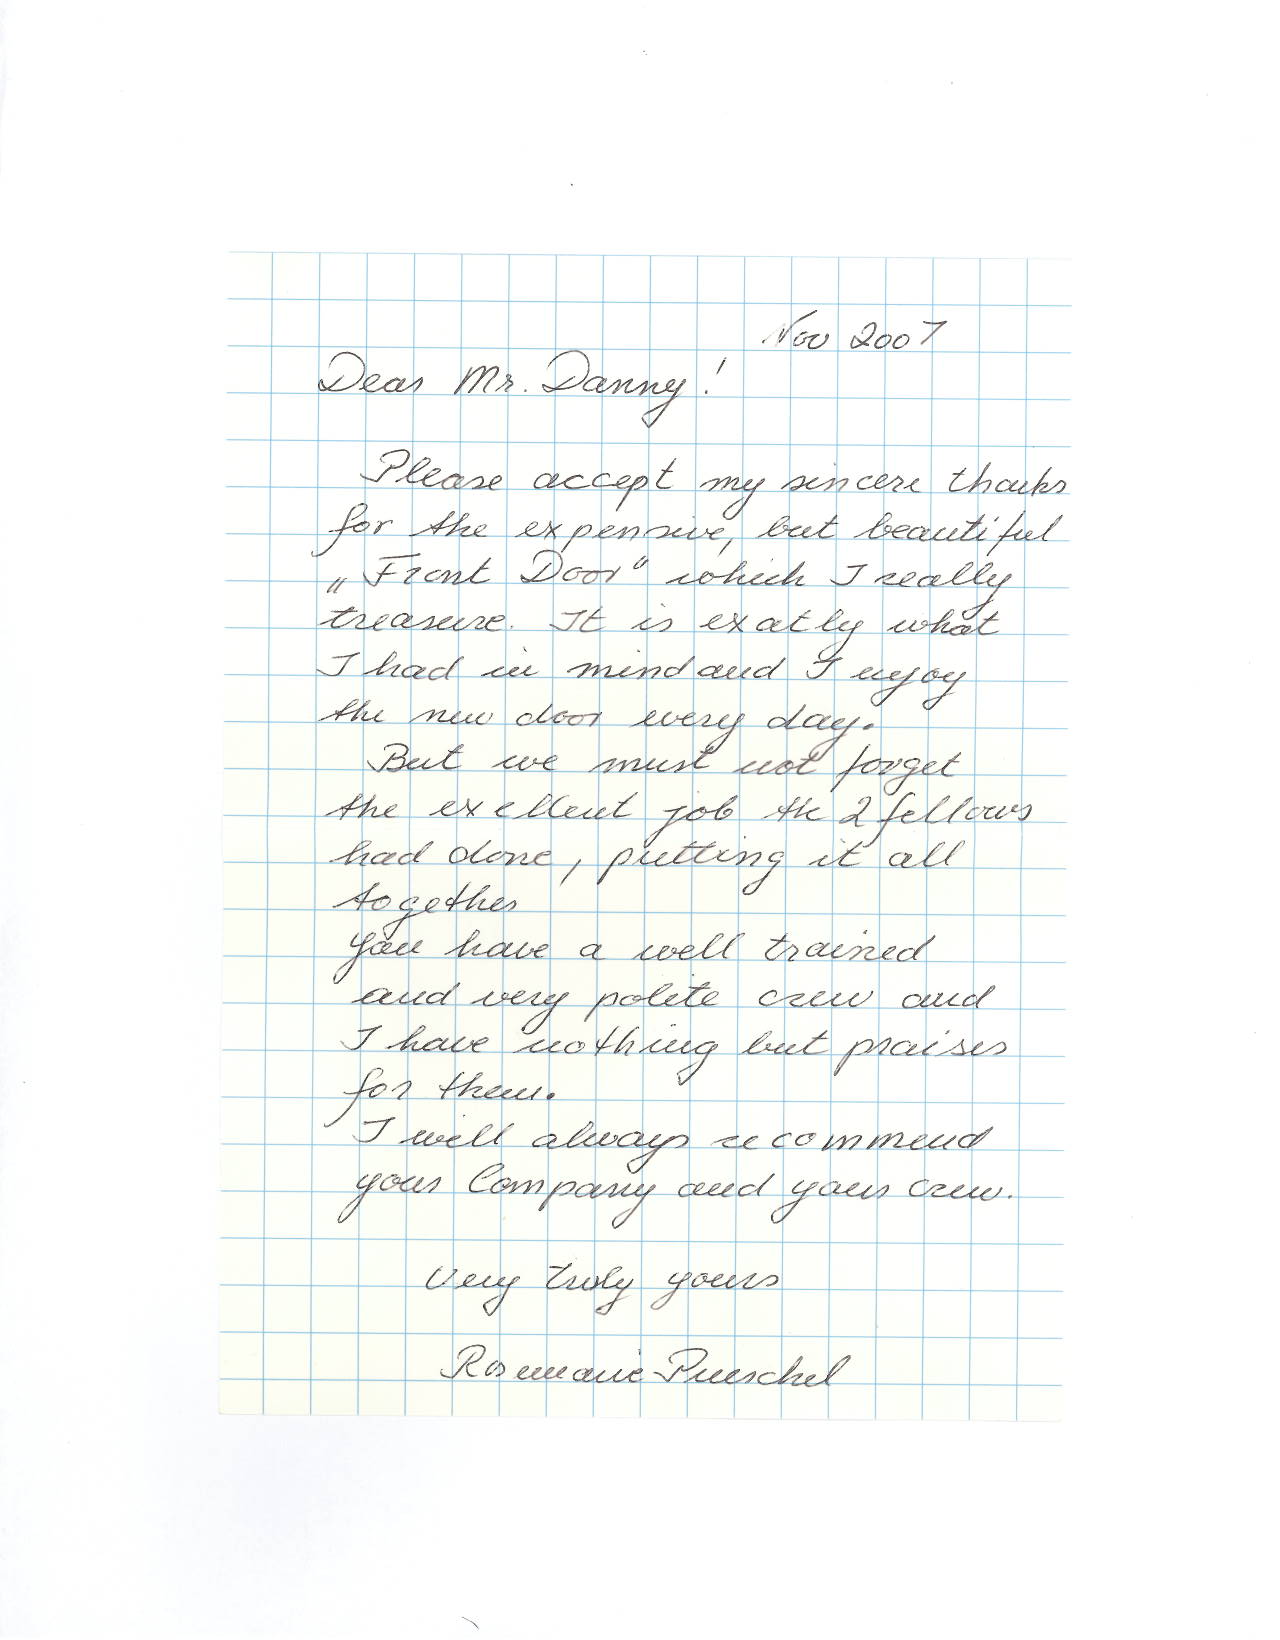 Nov 2007
Dear Mr. Danny!
Please accept my sincere thanks
for the expensive, but beautiful
„Front Door“ which I really
treasure. It is exatly what
I had in mind and I enjoy
the new door every day.
But we must not forget
the excellent job the 2 fellows
had done, putting it all
together
you have a well trained
and very polite crew and
I have nothing but praises
for them.
I will always recommend
your Company and your crew.
Very truly yours
Rosemarie Pueschel